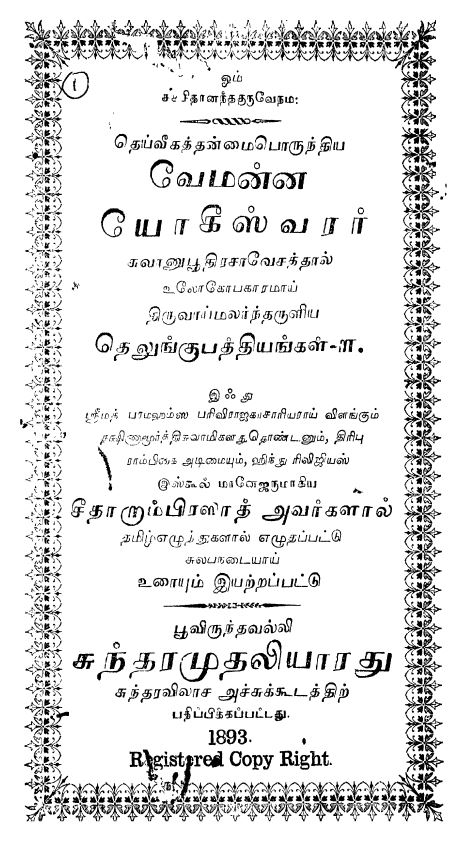 ஓம்
சச்சிதானந்தகுருவேநம:
தெய்வீகத்தன்மைபொருந்திய
வேமன்ன
யோகீஸ்வரர்
சுவானுபூதிரசாவேசத்தால்
உலோகோபகாரமாய்
திருவாய்மலர்ந்தருளிய
தெலுங்குபத்தியங்கள்-ள.
இஃது
ஸ்ரீமத் பரமஹம்ஸ பரிவிராஜகாசாரியராய் விளங்கும்
தக்ஷிணாமூர்த்திசுவாமிகளது,தொண்டனும், திரிபு
ராம்பிகை அடிமையும், ஹிந்து ரிலிஜியஸ்
இஸ்கூல் மானேஜருமாகிய
சீதாராம்பிரஸாத் அவர்களால்
தமிழ்எழுத்துகளால் எழுதப்பட்டு
சுலபநடையாய்
உரையும் இயற்றப்பட்டு
பூவிருந்தவல்லி
சுந்தரமுதலியாரது
சுந்தரவிலாச அச்சுக்கூடத்திற்
பதிப்பிக்கப்பட்டது.
1893.
Registered Copy Right.